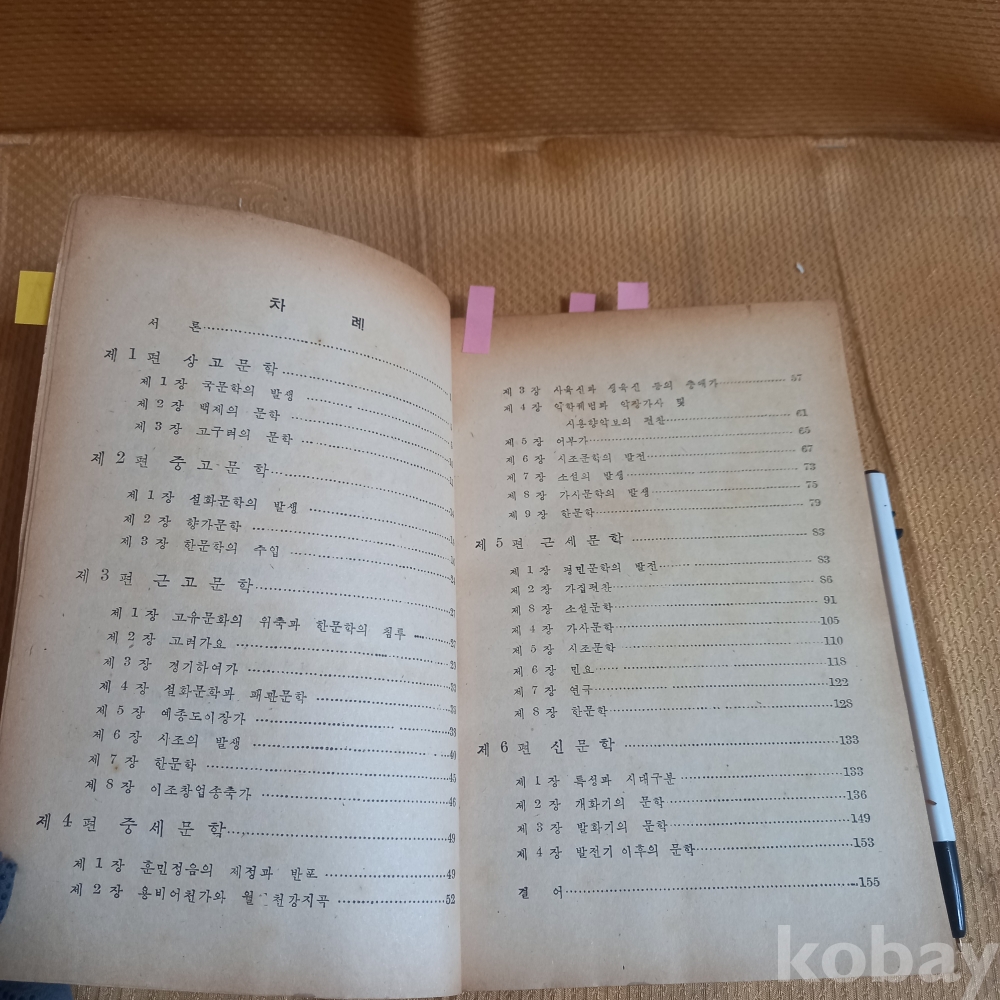 차 례
서 론
제 1 편 상 고 문 학
제 1 장 국문학의 발생
제 2 장 백제의 문학
제 3 장 고구려의 문학
제 2 편 중 고 문 학
제 1 장 설화문학의 발생
제 2 장 향가문학
제 3 장 한문학의 수입
제 3 편 근 고 문 학 27
제 1 장 고유문화의 위축과 한문학의 침투 27
제 2 장 고려가요 29
제 3 장 경기하여가 33
제 4 장 설화문학과 패관문학
제 5 장 예종도이장가
제 6 장 시조의 발생 40
제 7 장 한문학 45
제 8 장 이조창업송축가 46
제 4 편 중 세 문 학 49
제 1 장 훈민정음의 제정과 반포 49
제 2 장 용비어천가와 월 천강지곡 52
제 3 장 사육신과 생육신 등의 충애가 57
제 4 장 악학궤범과 악장가사 및
시용향악보의 편찬 61
제 5 장 어부가 65
제 6 장 시조문학의 발전 67
제 7 장 소설의 발생 73
제 8 장 가사문학의 발생 75
제 9 장 한문학 79
제 5 편 근 세 문 학 83
제 1 장 평민문학의 발전 83
제 2 장 가집편찬 86
제 8 장 소설문학 91
제 4 장 가사문학 105
제 5 장 시조문학 110
제 6 장 민요 118
제 7 장 연극 122
제 8 장 한문학 128
제 6 편 신 문 학 133
제 1 장 특성과 시대구분 133
제 2 장 개화기의 문학 136
제 3 장 발화기의 문학 149
제 4 장 발전기 이후의 문학 153
결 어 155
kobay